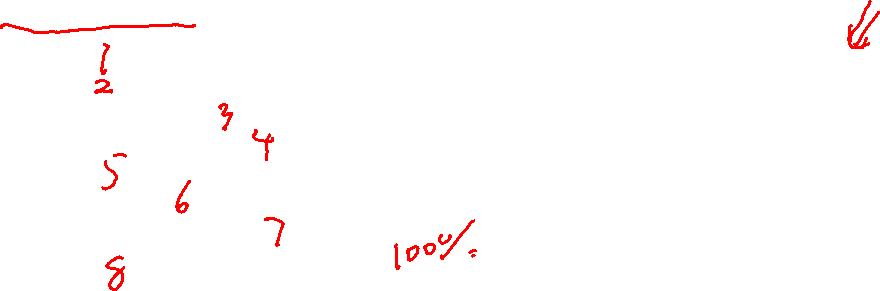 1
2
3
4
5
6
7
100%
8